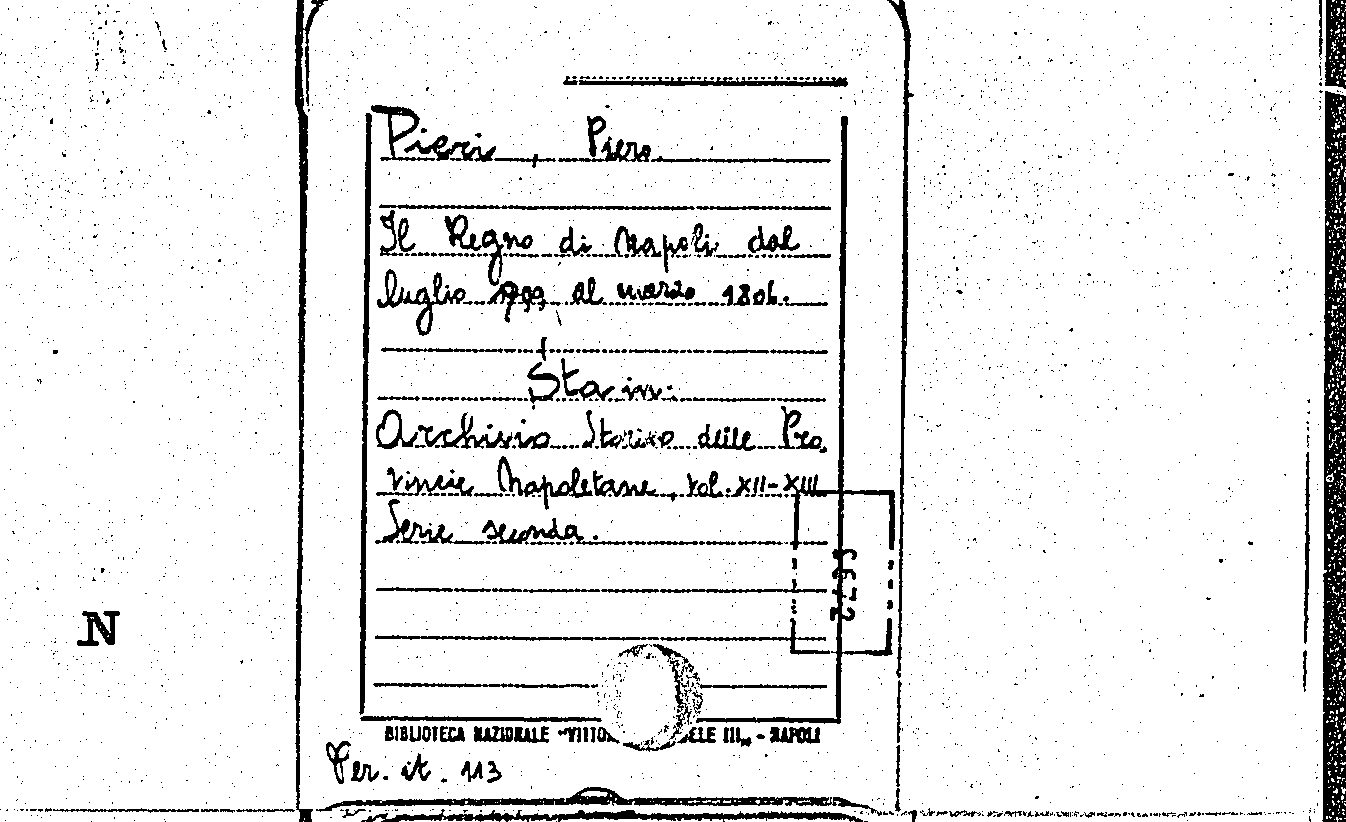 Pieri, Piero.
Il Regno di Napoli dal
luglio 1799 al marzo 1806.
Sta in:
Archivio Storico delle Pro,
vincie Napoletane, vol. XII-XIII
Serie seconda.
N
BIBLIOTECA NAZIONALE "VITTO ELE III„ - NAPOLI
Per. it. 113